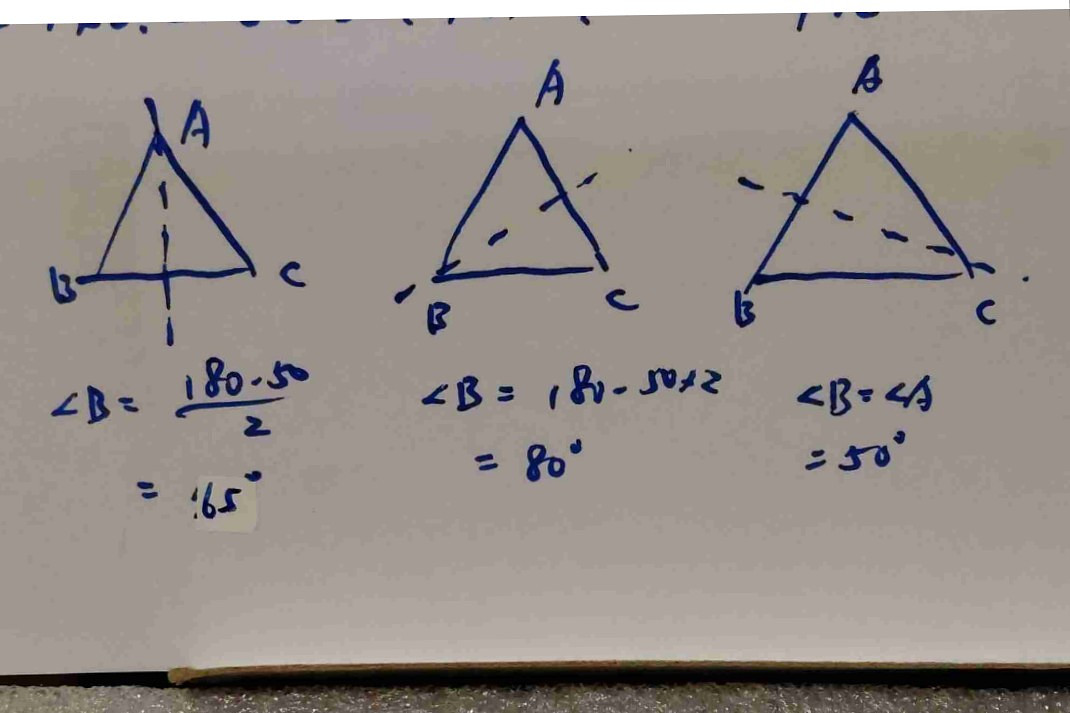 A
B
C
∠B = 180-50
2
= 65°
A
B
C
∠B = 180-50×2
= 80°
A
B
C
∠B=∠A
=50°